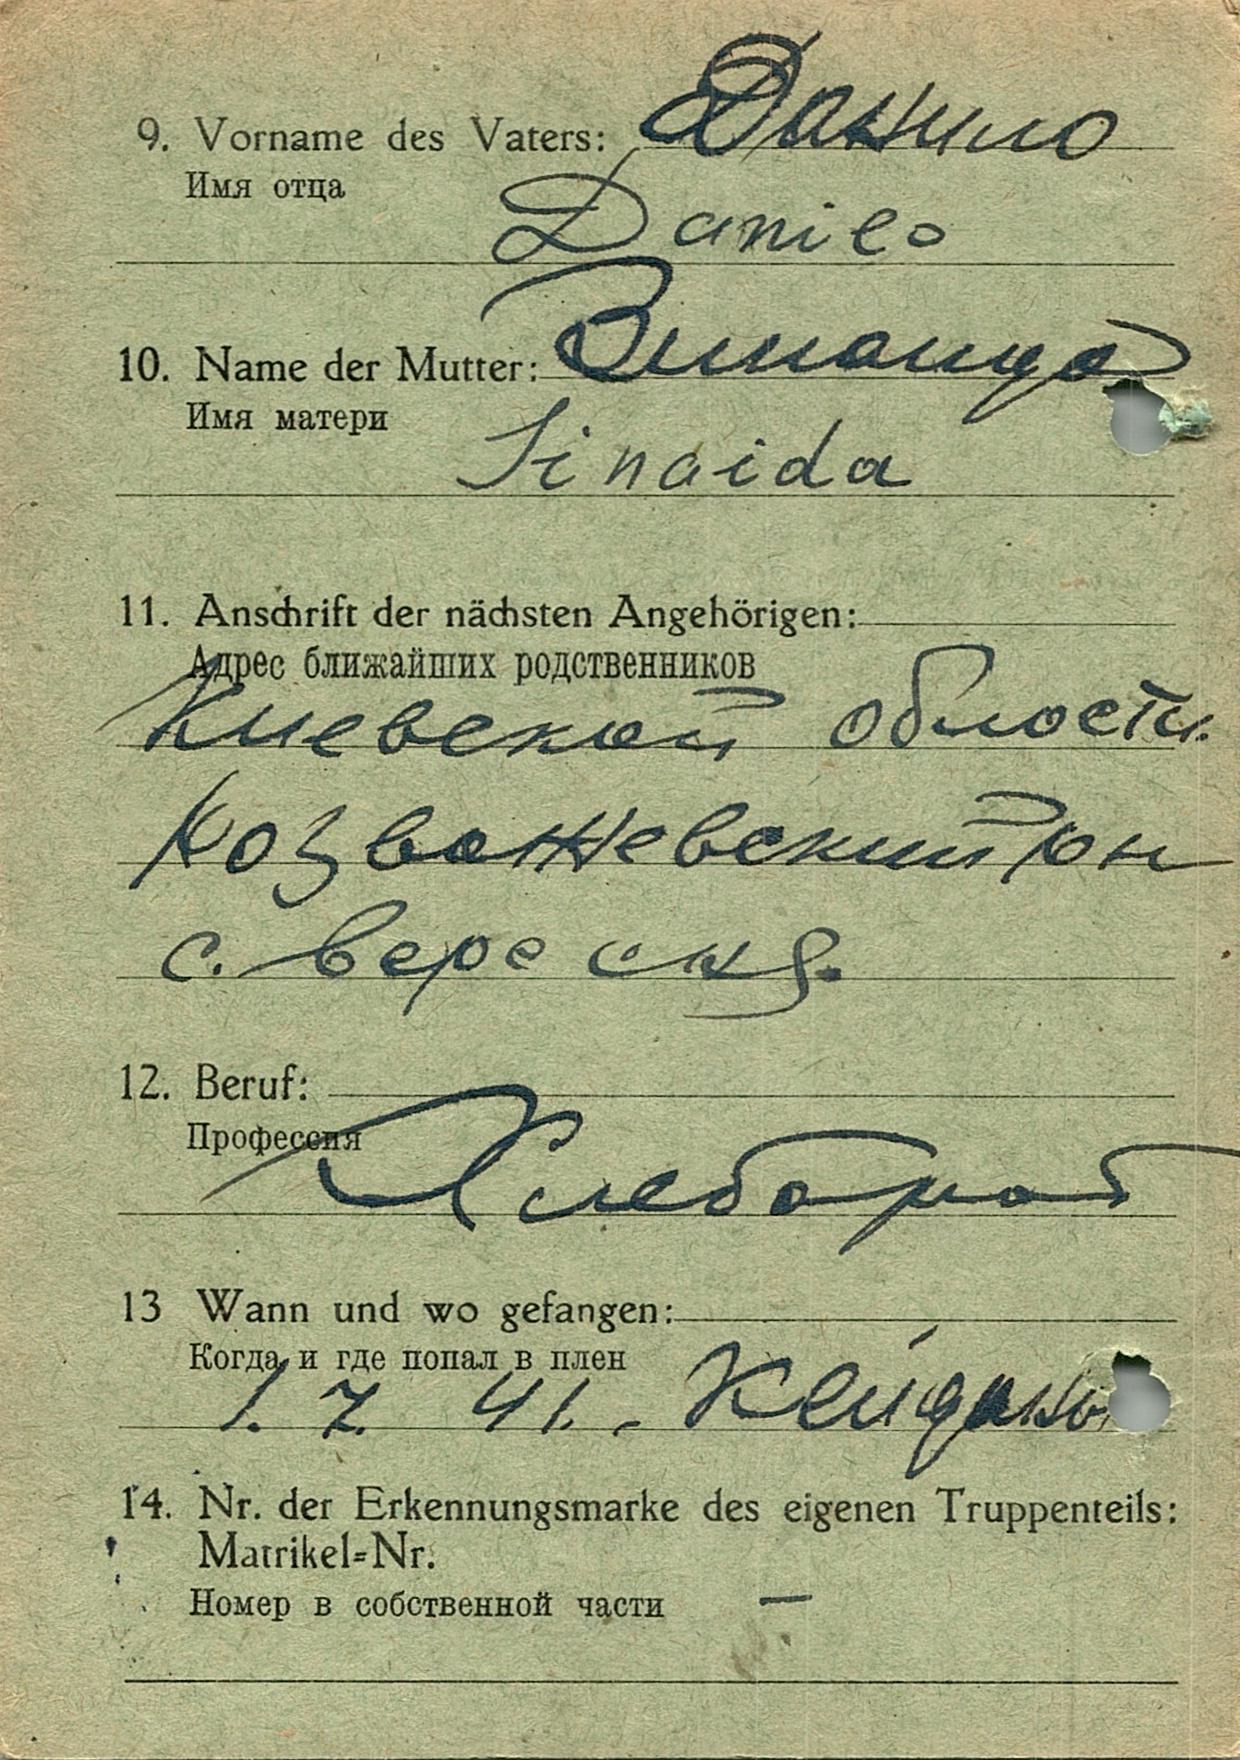 9. Vorname des Vaters: Данило
Имя отца
Danilo
10. Name der Mutter: Зинаида
Имя матери
Sinaida
11. Anschrift der nächsten Angehörigen:
Адрес ближайших родственников
Киевской области.
Розважевский рн
с. Вересня.
12. Beruf:
Профессия
Хлебороб
13 Wann und wo gefangen:
Когда и где попал в плен
1. 7. 41. Кейданы
14. Nr. der Erkennungsmarke des eigenen Truppenteils:
Matrikel=Nr.
Номер в собственной части —